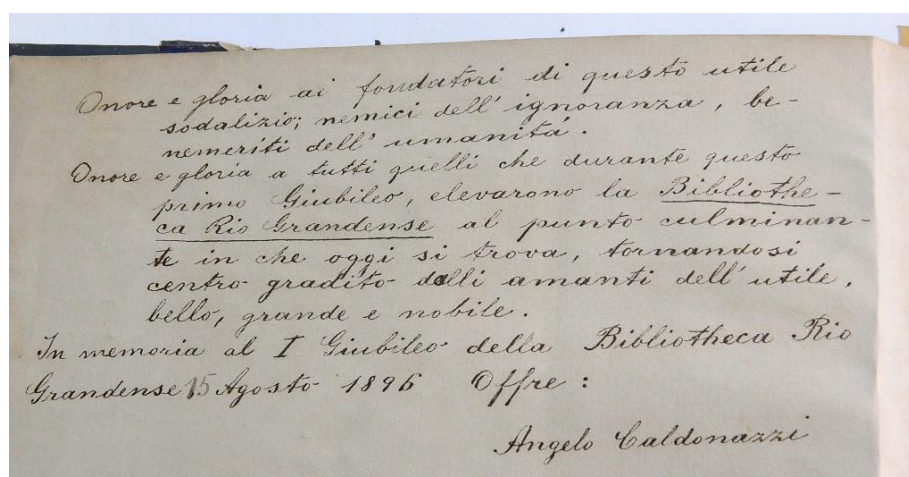 Onore e gloria ai fondatori di questo utile
sodalizio; nemici dell' ignoranza, be-
nemeriti dell' umanitá.
Onore e gloria a tutti quelli che durante questo
primo Giubileo, elevarono la Bibliothe-
ca Rio Grandense al punto culminan-
te in che oggi si trova, tornandosi
centro gradito delli amanti dell' utile,
bello, grande e nobile.
In memoria al I Giubileo della Bibliotheca Rio
Grandense 15 Agosto 1896 Offre :
Angelo Caldonazzi